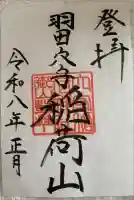 登拝
羽田穴守
稲荷山
令和八年正月